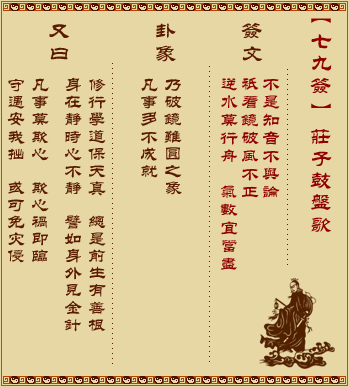 【七九簽】 莊子鼓盤歌
簽文
不是知音不與論
祇看鏡破風不正
逆水莫行舟 氣數宜當盡
卦象
乃破鏡難圓之象
凡事多不成就
又曰
修行學道保天真 總是前生有善根
身在靜時心不靜 譬如身外見金計
凡事莫欺心 欺心禍即臨
守遇安我拙 或可免灾侵